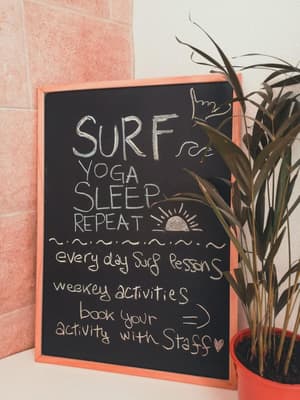 SURF
YOGA
SLEEP
REPEAT
every day Surf lessons
weekey activities
book your =>
activity with Staff